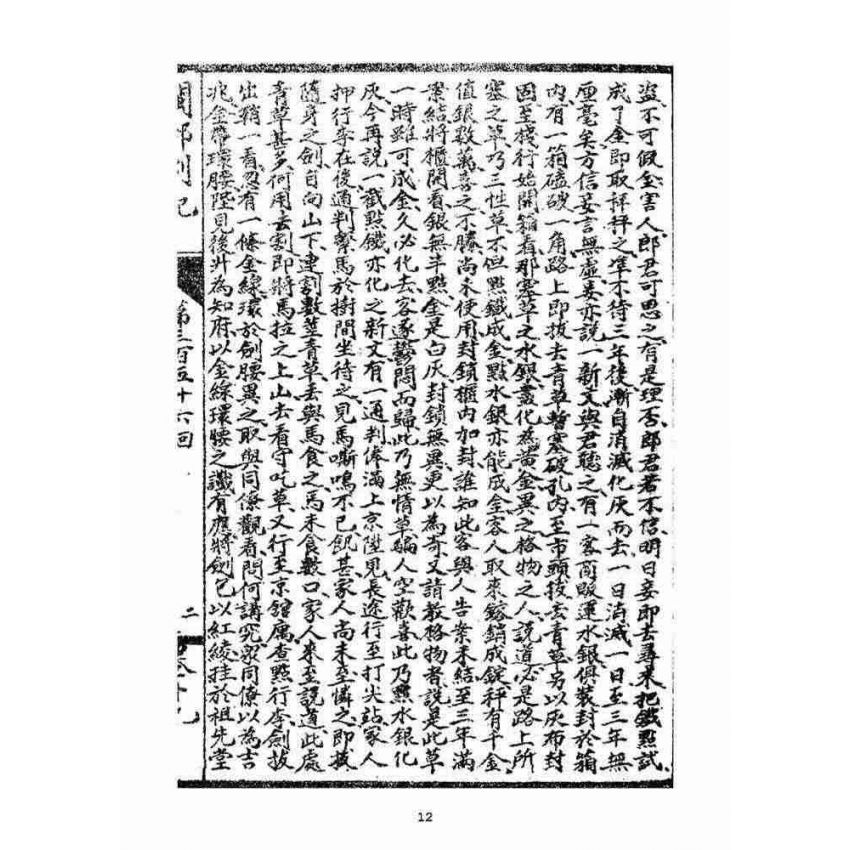 盜不可假金害人郎君可思之有是理否郎君若不信明日妾即去尋來把鐵點試
成了金即取秤秤之準不待三年後漸自消滅化灰而去一日消滅一日至三年無
厘毫矣方信妾言無虛妾亦說一新文與君聽之有一客商販運水銀俱裝封於箱
內有一箱磕破一角路上即拔去青草暫塞破孔內至市頭拔去青草另以灰布封
固至棧行始開箱看那塞草之水銀盡化為黃金異之格物之人說道必是路上所
塞之草乃三性草不但點鐵成金點水銀亦能成金客人取來鎔銷成錠秤有千金
值銀數萬喜之不勝尚未使用封鎖櫃內加封誰知此客與人告案未結至三年滿
案結將櫃開看銀無半點金是白灰封鎖無異更以為奇又請教格物者說是此草
一時雖可成金久必化去客遂鬱悶而歸此乃無情草騙人空歡喜此乃點水銀化
灰今再說一截點鐵亦化之新文有一通判俸滿上京陞見長途行至打尖站家人
押行李在後通判繫馬於樹間坐待之見馬嘶鳴不已飢甚家人尚未至憐之即拔
隨身之劍自向山下連割數莖青草丟與馬食之馬未食數口家人來至說道此處
青草甚多何用去割即將馬拉之上山去看守吃草又行至京館寓查點行李劍拔
出鞘一看忽有一條金線環於劍腰異之取與同僚觀看問何講究眾同僚以為吉
兆金帶環腰陞見後升為知府以金線環腰之讖有應將劍包以紅綾挂於祖先堂
閩都別記
第三百五十六回
二
卷十九
12